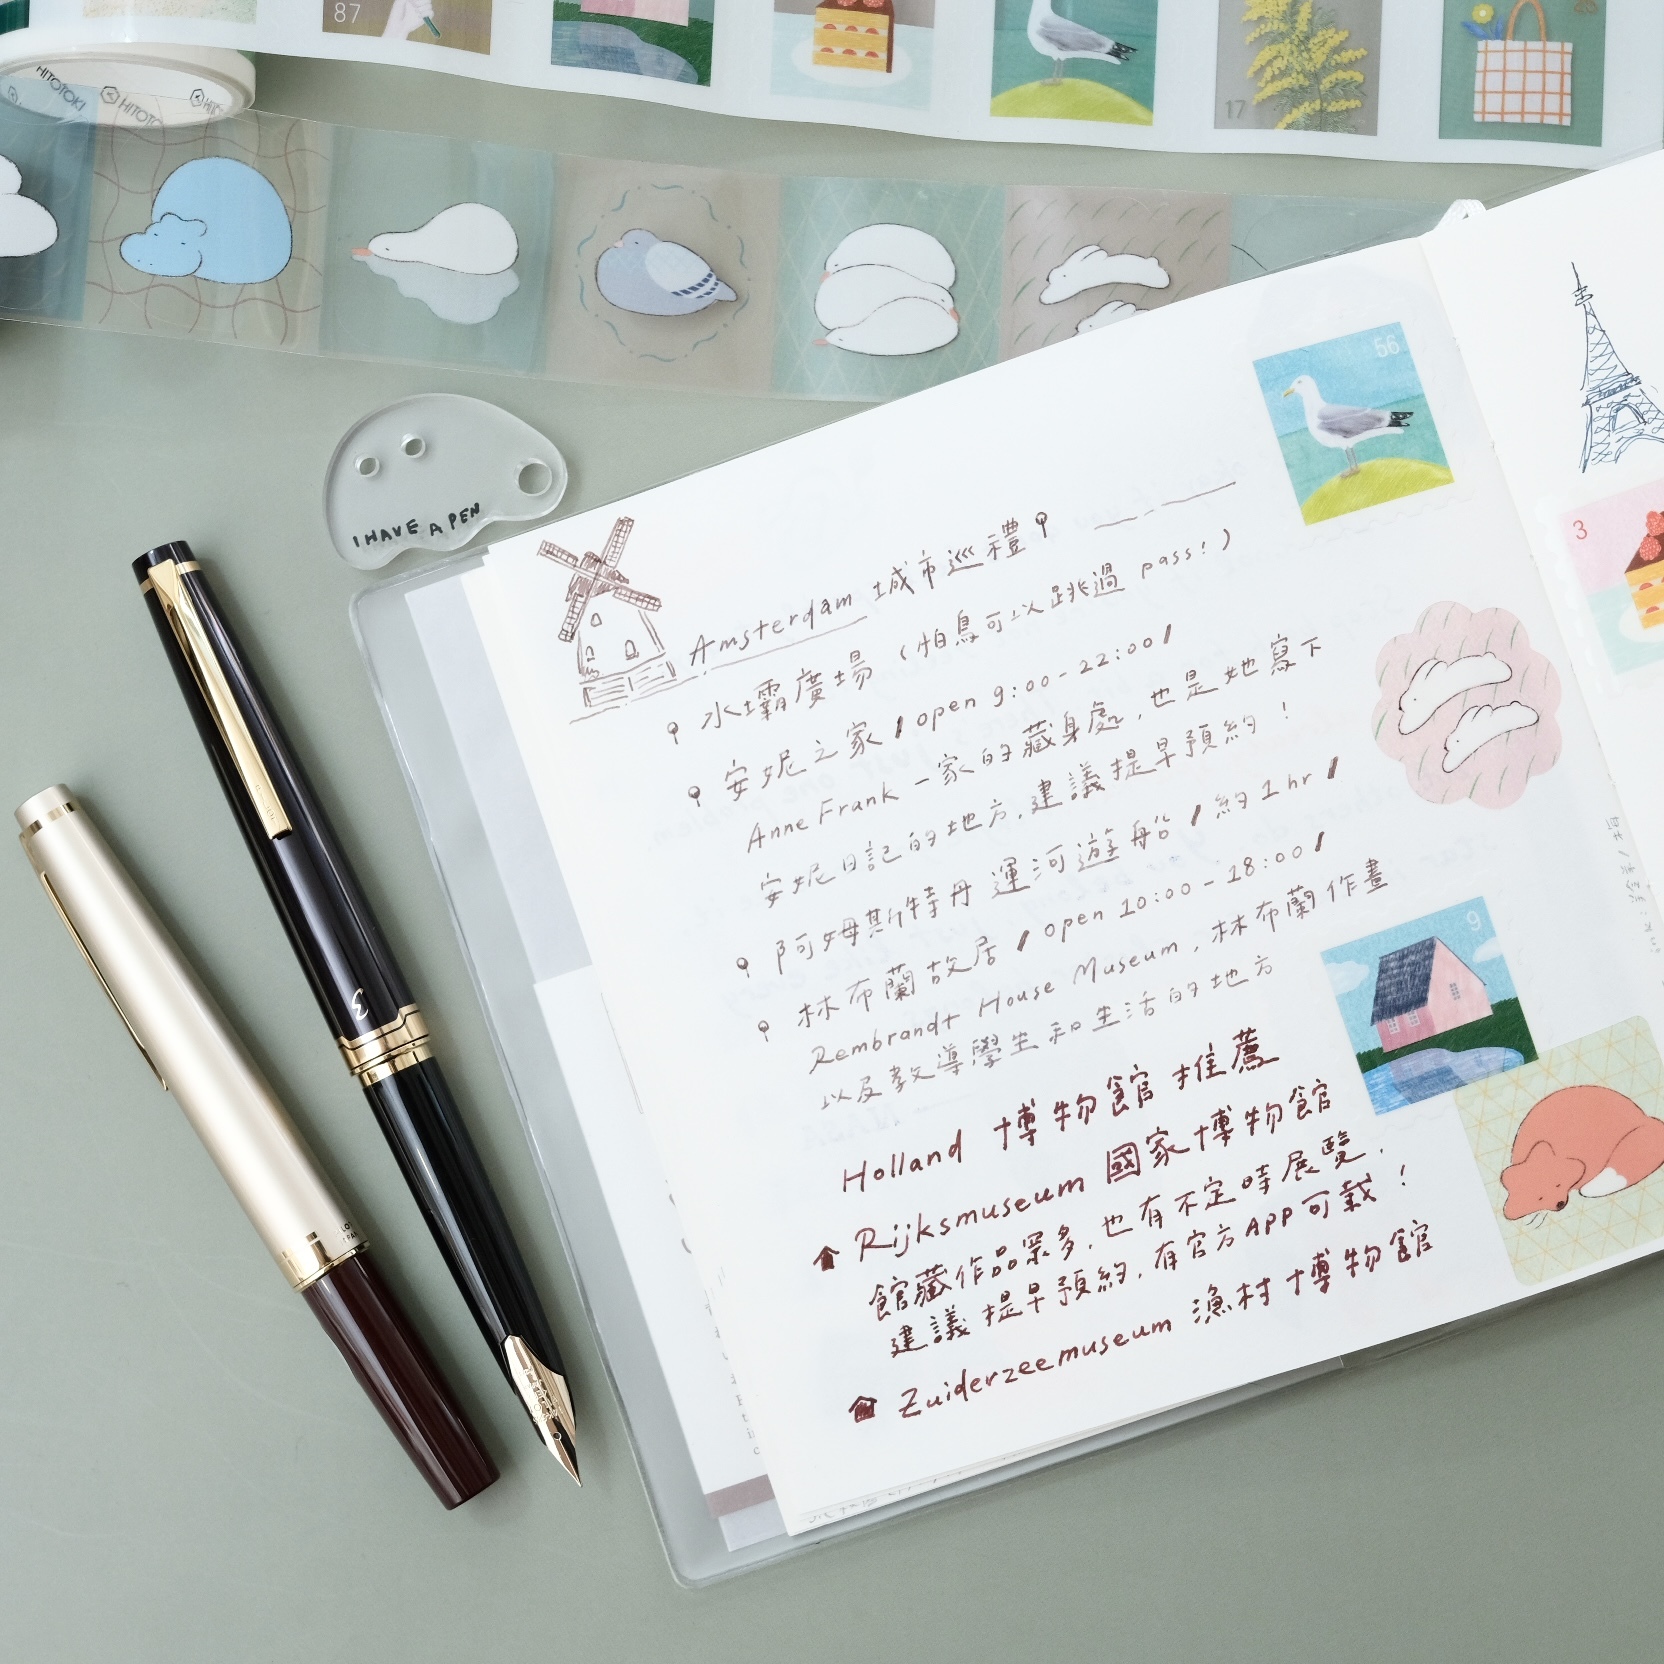 87
17
HITOTOKI
HITOTOKI
I HAVE A PEN
56
3
9
Amsterdam 城市巡禮
水壩廣場 (怕鳥可以跳過 pass!)
安妮之家 / open 9:00-22:00 /
Anne Frank 一家的藏身處,也是她寫下
安妮日記的地方,建議提早預約!
阿姆斯特丹 運河遊船 / 約1hr /
林布蘭故居 / open 10:00-18:00 /
Rembrandt House Museum,林布蘭作畫
以及教導學生和生活的地方
Holland 博物館推薦
Rijksmuseum 國家博物館
館藏作品眾多,也有不定時展覽,
建議提早預約,有官方APP可載!
Zuiderzeemuseum 漁村博物館